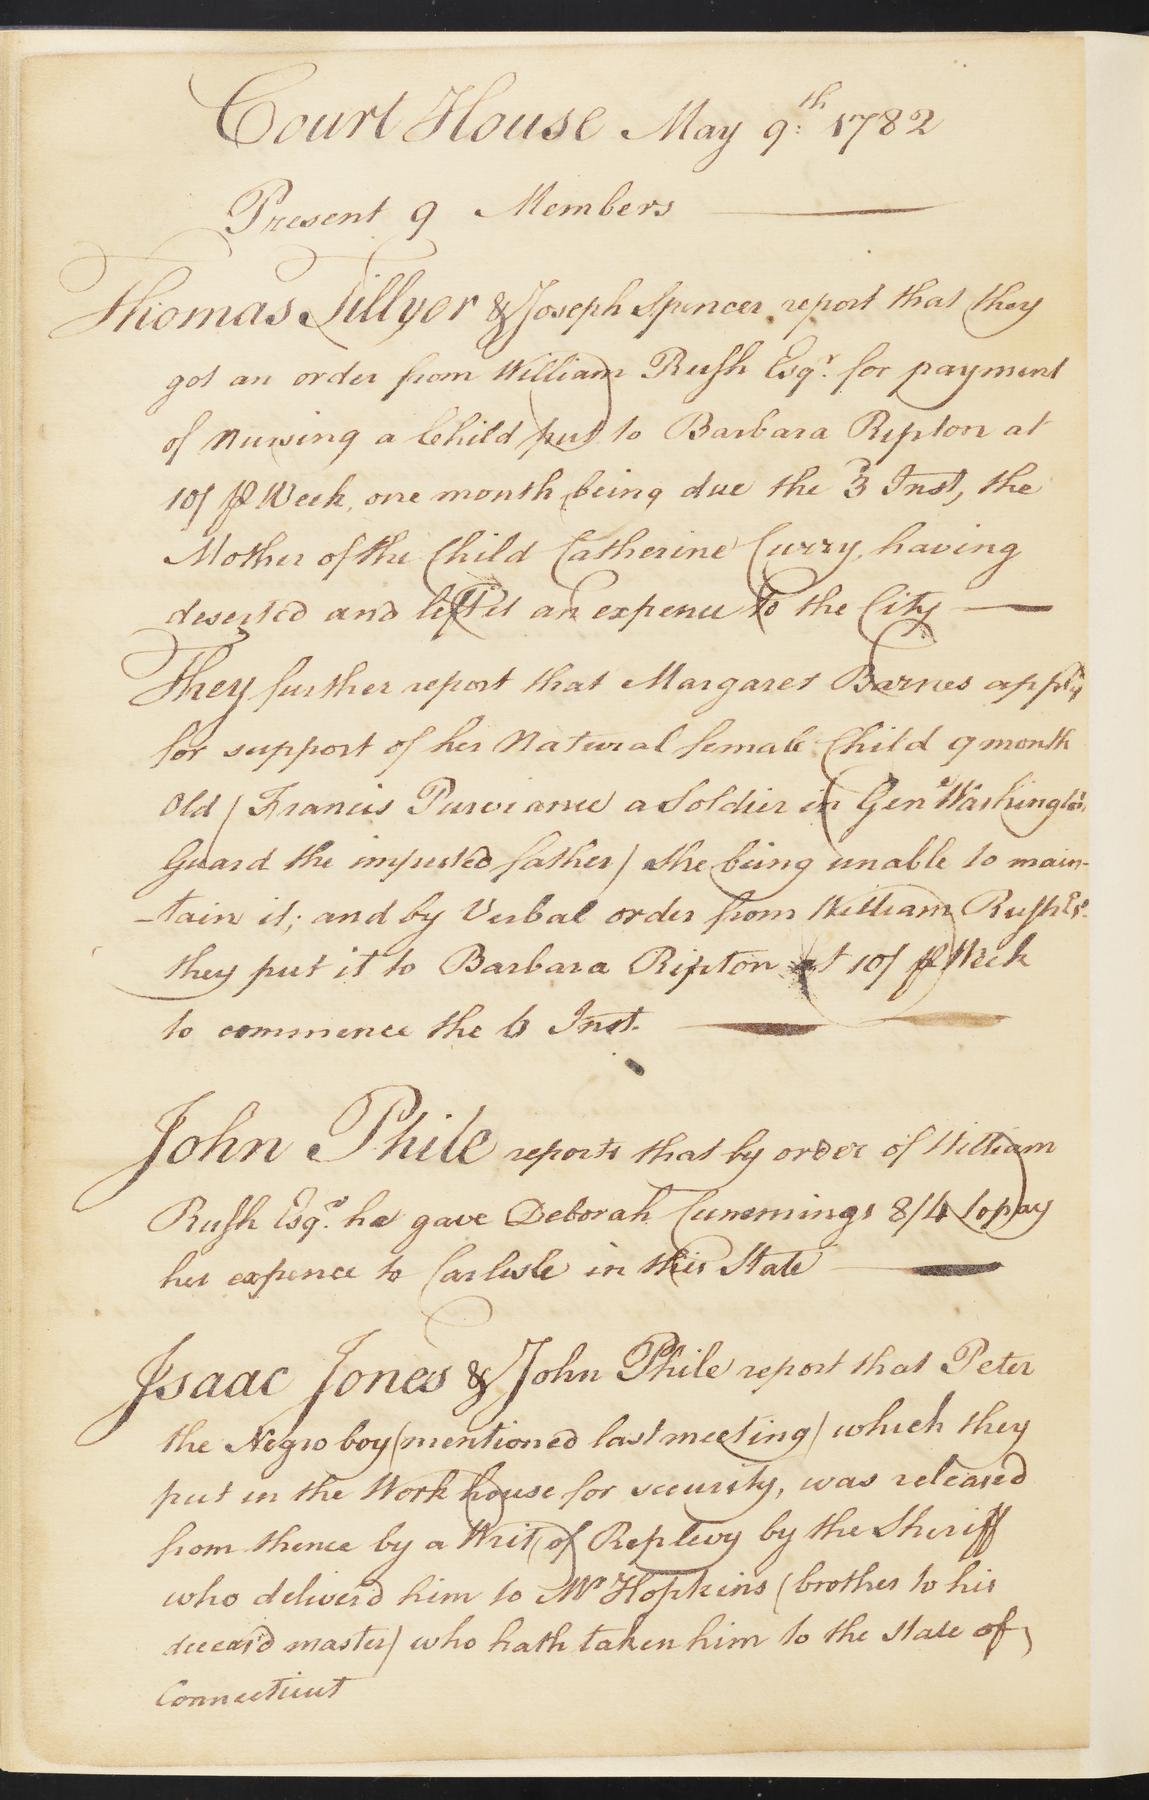 Court House May 9:th 1782
Present 9 Members
Thomas Tillyer & Joseph Spencer report that they
got an order from William Rush Esqr. for payment
of Nursing a Child put to Barbara Ripton at
10/ ⅌ Week, one month being due the 3 Inst, the
Mother of the Child Catherine Curry, having
deserted and left it an expence to the City
They further report that Margaret Barnes apply'd
for support of her Natural female Child 9 month
Old (Francis Purviance a Soldier in Genl Washington's
Guard the imputed father) she being unable to main-
-tain it; and by Verbal order from William Rush Esr.
they put it to Barbara Ripton at 10/ ⅌ Week
to commence the 6 Inst.
John Phile reports that by order of William
Rush Esqr. he gave Deborah Cummings 8/4 to pay
her expence to Carlisle in this State
Isaac Jones & John Phile report that Peter
the Negro boy (mentioned last meeting) which they
put in the Work house for security, was released
from thence by a Writ of Replevy by the Sheriff
who deliver'd him to Mr Hopkins (brother to his
deceas'd master) who hath taken him to the State of
Connecticut